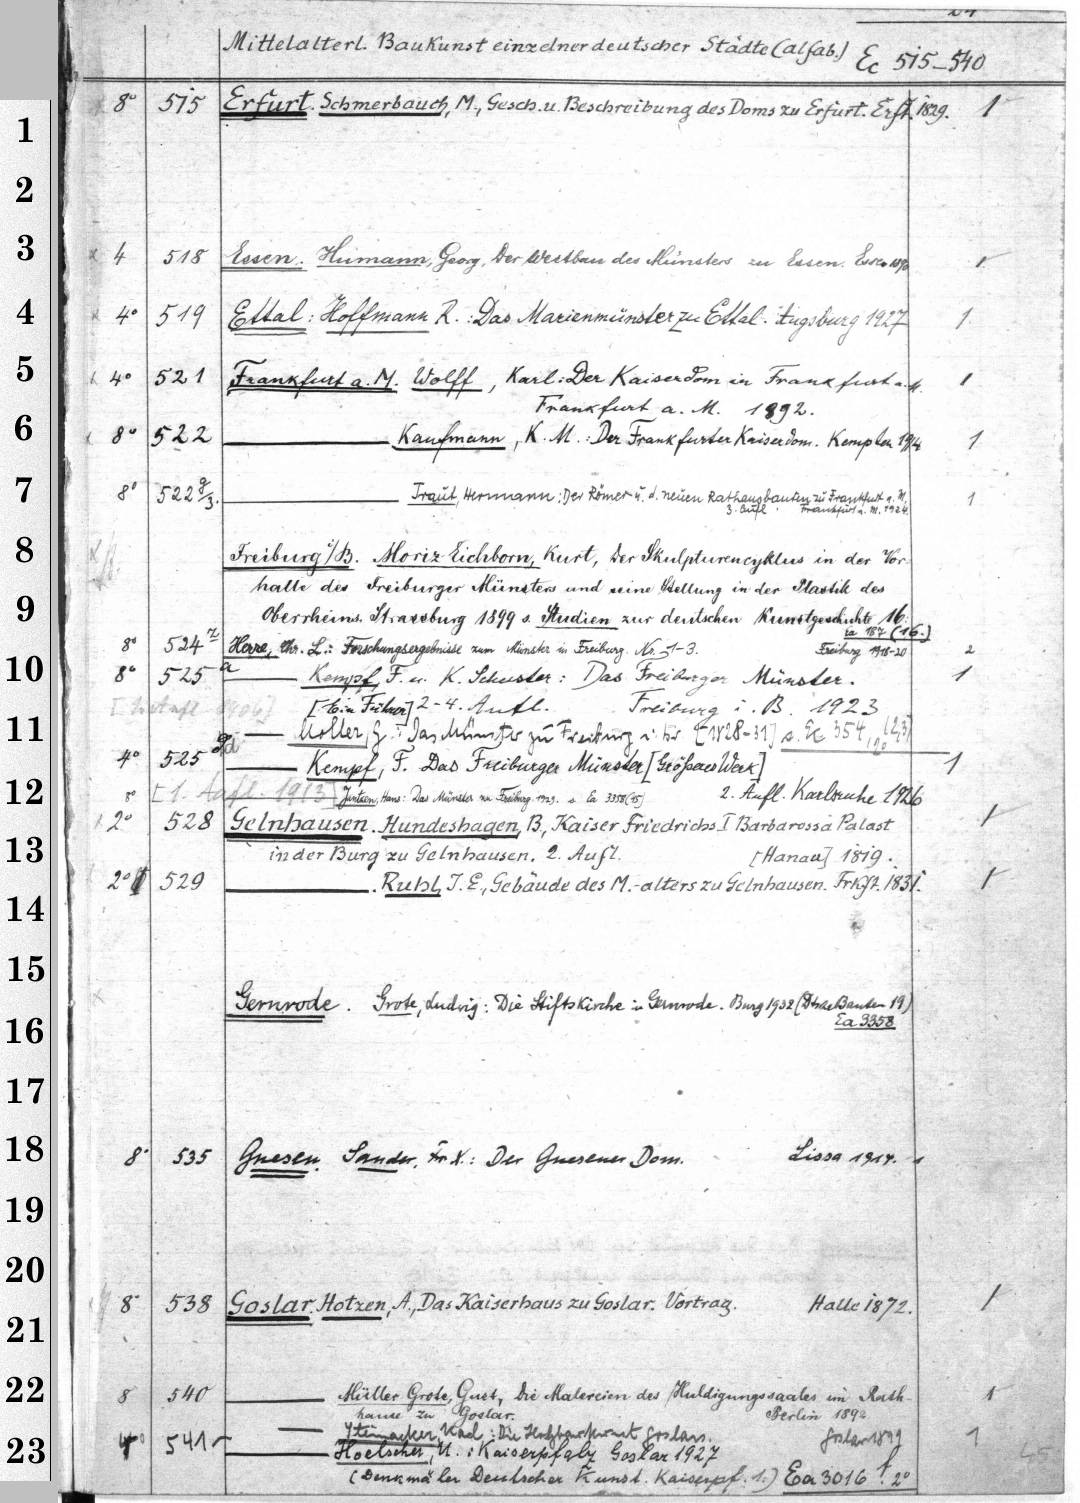 24
Mittelalterl. Baukunst einzelner deutscher Städte (alfab.) Ec 515-540
8° 515 Erfurt. Schmerbauch, M., Gesch. u. Beschreibung des Doms zu Erfurt. Erft. 1829. 1
1
2
3
4 518 Essen. Humann, Georg, Der Westbau des Münsters zu Essen. Essen 1890 1
4
4° 519 Ettal: Hoffmann R.: Das Marienmünster zu Ettal. Augsburg 1927 1
5
4° 521 Frankfurt a. M. Wolff, Karl: Der Kaiserdom in Frankfurt a. M. 1
Frankfurt a. M. 1892.
6
8° 522 Kaufmann, K. M.: Der Frankfurter Kaiserdom. Kempten 1914 1
7
8° 522 g/3. Traut, Hermann: Der Römer u. d. neuen Rathausbauten zu Frankfurt a. M. 1
3. Aufl. Frankfurt a. M. 1924.
8
Freiburg i/B. Moriz-Eichborn, Kurt, Der Skulpturencyklus in der Vor-
halle des Freiburger Münsters und seine Stellung in der Plastik des
9
Oberrheins. Strassburg 1899 s. Studien zur deutschen Kunstgeschichte 16.
ia 187 (16.)
8° 524 z Herre, Chr. L.: Forschungsergebnisse zum Münster in Freiburg. Nr. 1-3. Freiburg 1918-20 2
10
8° 525 a Kempf, F. u. K. Schuster: Das Freiburger Münster. 1
[Ein Führer] 2-4. Aufl. Freiburg i. B. 1923
11
Moller, G.: Das Münster zu Freiburg i. Br [1828-31] s. Ec 354, 2° (2,3)
4° 525 Kempf, F. Das Freiburger Münster [Größeres Werk] 1
12
[1. Aufl. 1913] Jantzen, Hans: Das Münster zu Freiburg. 1929. s. Ea 3358(15) 2. Aufl. Karlsruhe 1926
2° 528 Gelnhausen. Hundeshagen, B., Kaiser Friedrichs I Barbarossa Palast 1
13
in der Burg zu Gelnhausen. 2. Aufl. [Hanau] 1819.
2° 529 Ruhl, J. E., Gebäude des M.-alters zu Gelnhausen. Frkft. 1831. 1
14
15
Gernrode. Grote, Ludwig: Die Stiftskirche in Gernrode. Burg 1932 (Dtsche Bauten 19)
16
Ea 3358
17
18
8° 535 Gnesen. Sander, Fr. X.: Der Gnesener Dom. Lissa 1914. 1
19
20
8° 538 Goslar. Hotzen, A., Das Kaiserhaus zu Goslar. Vortrag. Halle 1872. 1
21
22
8 540 Müller Grote, Gust, Die Malereien des Huldigungssaales im Rath- 1
hause zu Goslar. Berlin 1892
Steinacker, Karl: Die Holzbaukunst Goslars. Goslar 1899
23
4° 541 Hoelscher, U.: Kaiserpfalz Goslar 1927 1
(Denkmäler Deutscher Kunst. Kaiserpf. 1.) Ea 3016 f. 2°